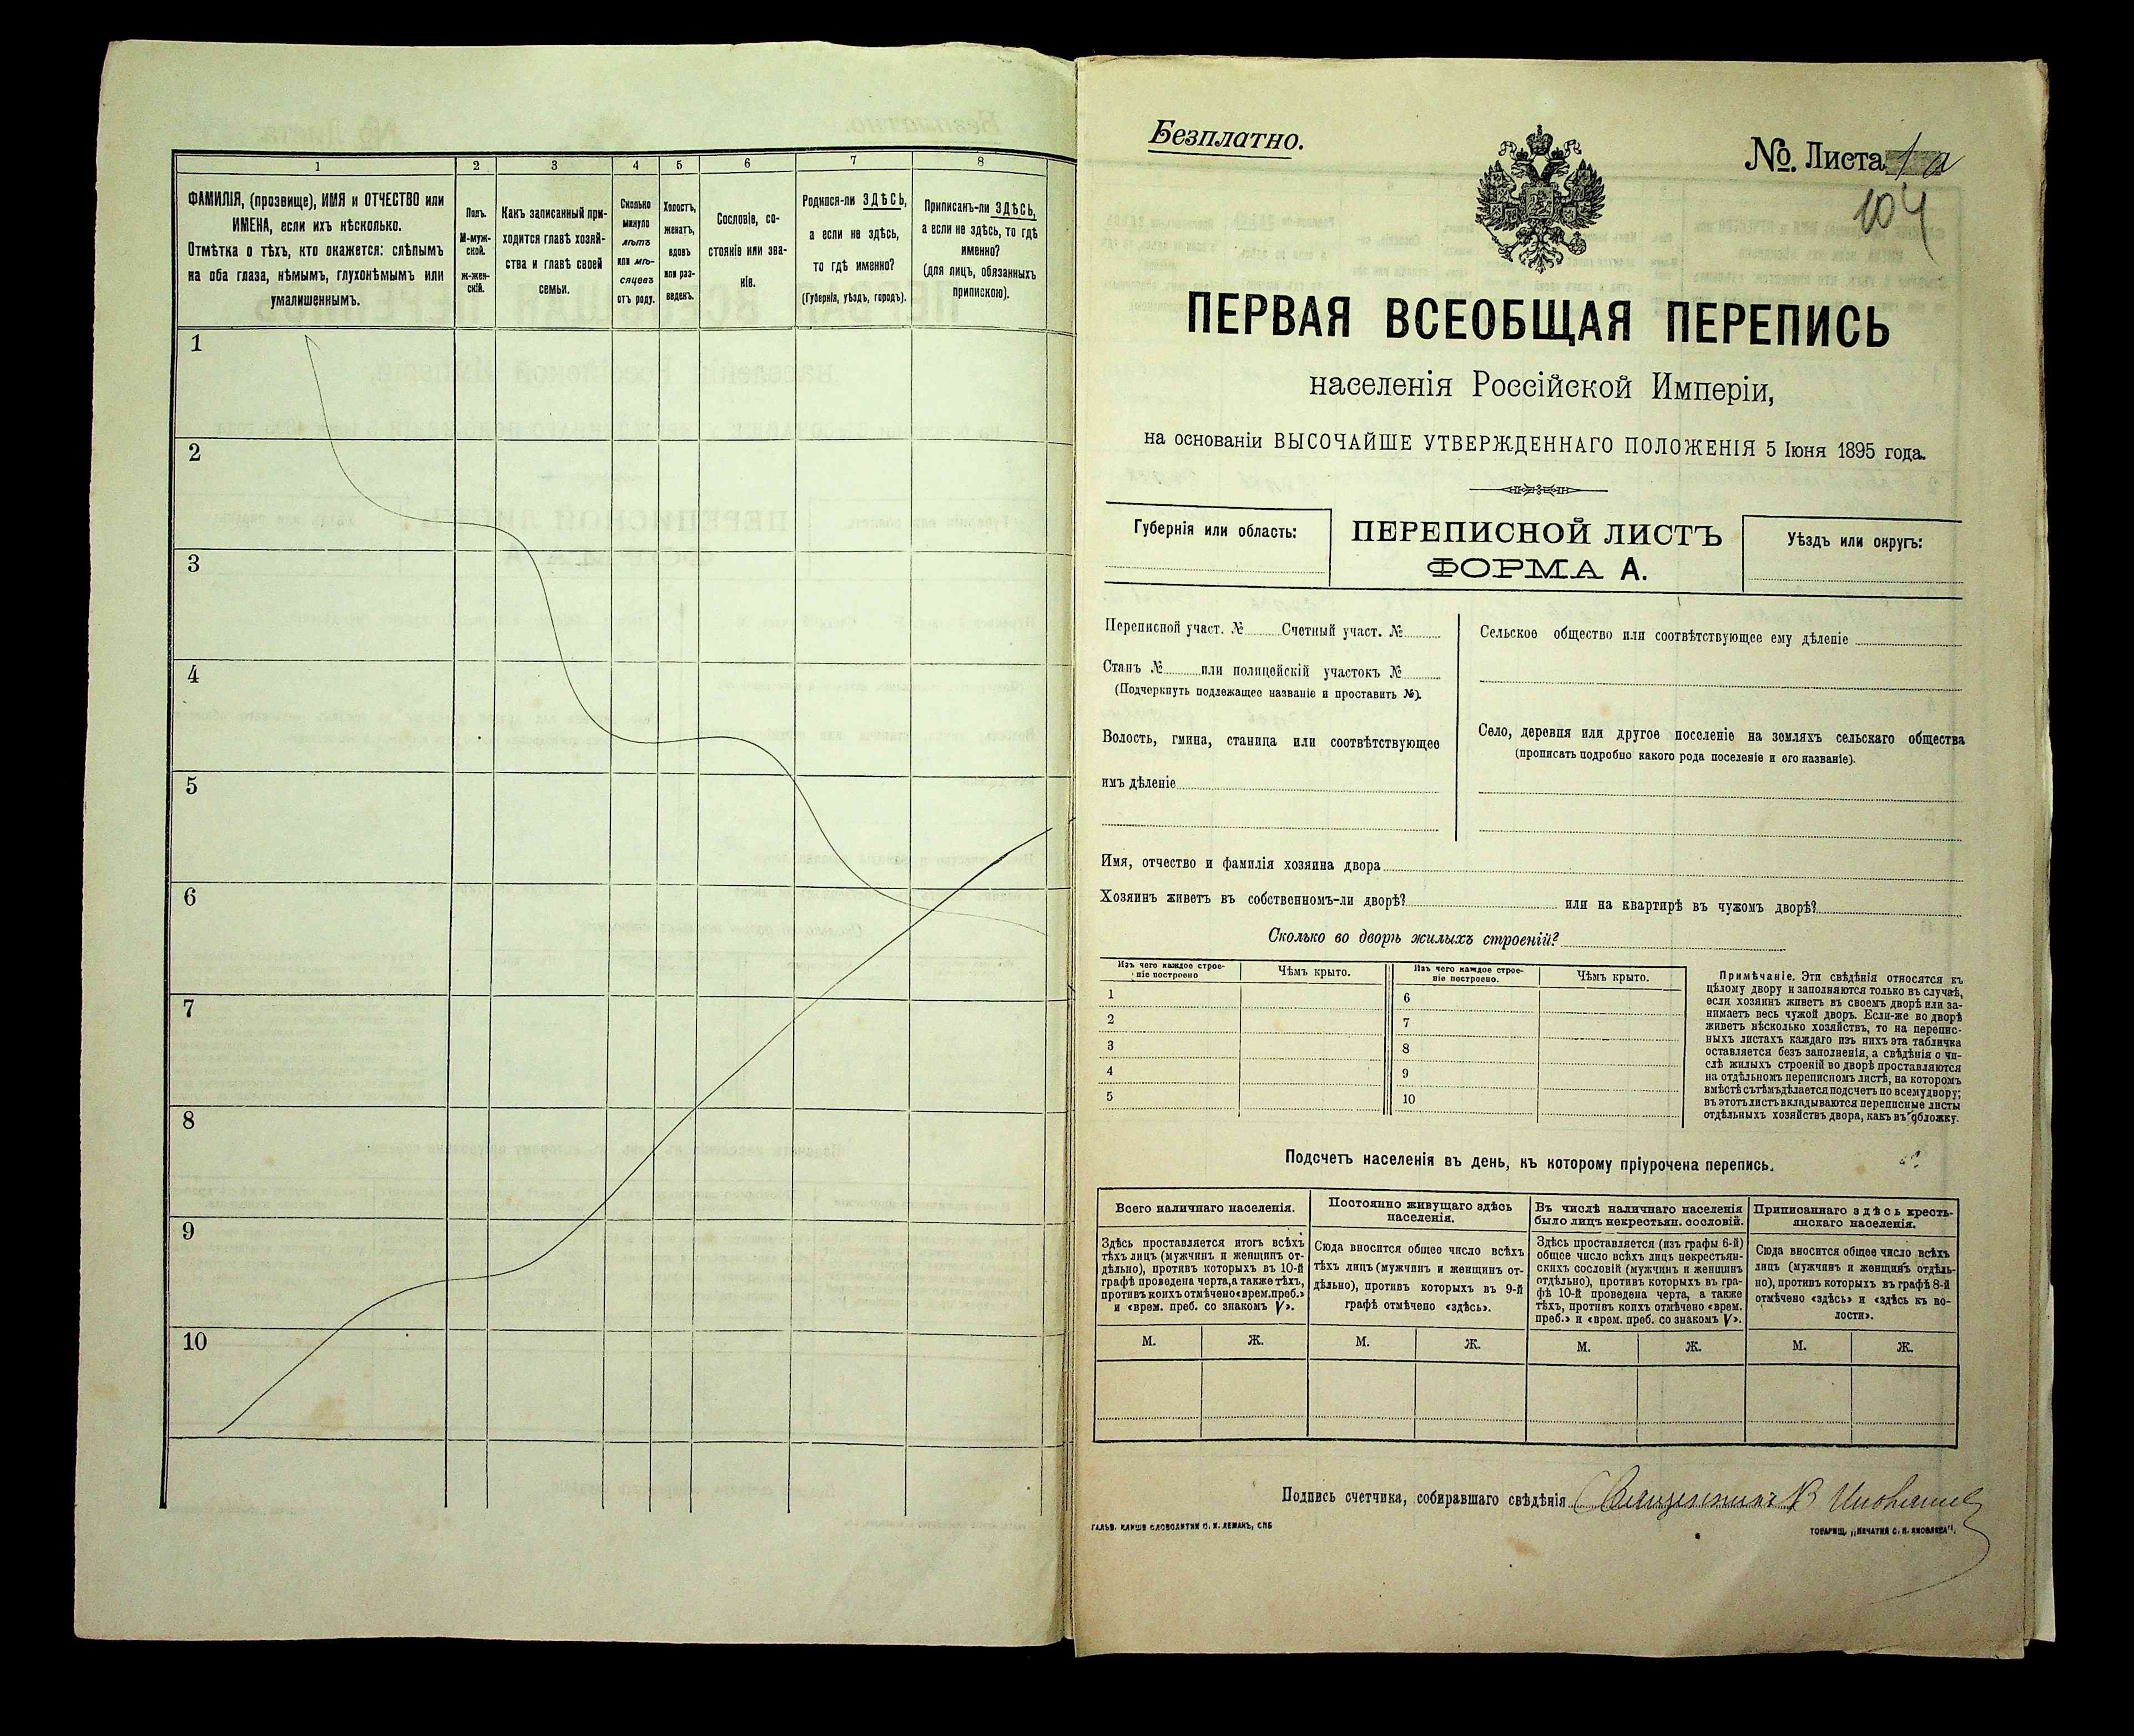 1
2
3
4
5
6
7
8
ФАМИЛІЯ, (прозвище), ИМЯ и ОТЧЕСТВО или
ИМЕНА, если ихъ нѣсколько.
Отмѣтка о тѣхъ, кто окажется: слѣпымъ
на оба глаза, нѣмымъ, глухонѣмымъ или
умалишеннымъ.
Полъ.
М-муж-
ской.
ж-жен-
скій.
Какъ записанный при-
ходится главѣ хозяй-
ства и главѣ своей
семьи.
Сколько
минуло
лѣтъ
или мѣ-
сяцевъ
отъ роду.
Холостъ,
женатъ,
вдовъ
или раз-
веденъ.
Сословіе, со-
стояніе или зва-
ніе.
Родился-ли ЗДѢСЬ,
а если не здѣсь,
то гдѣ именно?
(Губернія, уѣздъ, городъ).
Приписанъ-ли ЗДѢСЬ,
а если не здѣсь, то гдѣ
именно?
(для лицъ, обязанныхъ
припискою).
1
2
3
4
5
6
7
8
9
10
Безплатно.
№. Листа 1 а
104
ПЕРВАЯ ВСЕОБЩАЯ ПЕРЕПИСЬ
населенія Россійской Имперіи,
на основаніи ВЫСОЧАЙШЕ УТВЕРЖДЕННАГО ПОЛОЖЕНІЯ 5 Іюня 1895 года.
Губернія или область:
ПЕРЕПИСНОЙ ЛИСТЪ
ФОРМА А.
Уѣздъ или округъ:
Переписной участ. № Счетный участ. №
Станъ № или полицейскій участокъ №
(Подчеркнуть подлежащее названіе и проставить №).
Волость, гмина, станица или соотвѣтствующее
имъ дѣленіе
Сельское общество или соотвѣтствующее ему дѣленіе
Село, деревня или другое поселеніе на земляхъ сельскаго общества
(прописать подробно какого рода поселеніе и его названіе).
Имя, отчество и фамилія хозяина двора
Хозяинъ живетъ въ собственномъ-ли дворѣ? или на квартирѣ въ чужомъ дворѣ?
Сколько во дворѣ жилыхъ строеній?
Изъ чего каждое строе-
ніе построено
Чѣмъ крыто.
Изъ чего каждое строе-
ніе построено.
Чѣмъ крыто.
1
2
3
4
5
6
7
8
9
10
Примѣчаніе. Эти свѣдѣнія относятся къ
цѣлому двору и заполняются только въ случаѣ,
если хозяинъ живетъ въ своемъ дворѣ или за-
нимаетъ весь чужой дворъ. Если-же во дворѣ
живетъ нѣсколько хозяйствъ, то на перепис-
ныхъ листахъ каждаго изъ нихъ эта табличка
оставляется безъ заполненія, а свѣдѣнія о чи-
слѣ жилыхъ строеній во дворѣ проставляются
на отдѣльномъ переписномъ листѣ, на которомъ
вмѣстѣ съ тѣмъ дѣлается подсчетъ по всему двору;
въ этотъ листъ вкладываются переписные листы
отдѣльныхъ хозяйствъ двора, какъ въ обложку.
Подсчетъ населенія въ день, къ которому пріурочена перепись.
Всего наличнаго населенія.
Постоянно живущаго здѣсь
населенія.
Въ числѣ наличнаго населенія
было лицъ некрестьян. сословій.
Приписаннаго здѣсь кресть-
янскаго населенія.
Здѣсь проставляется итогъ всѣхъ
тѣхъ лицъ (мужчинъ и женщинъ от-
дѣльно), противъ которыхъ въ 10-й
графѣ проведена черта, а также тѣхъ,
противъ коихъ отмѣчено «врем. преб.»
и «врем. преб. со знакомъ V».
Сюда вносится общее число всѣхъ
тѣхъ лицъ (мужчинъ и женщинъ от-
дѣльно), противъ которыхъ въ 9-й
графѣ отмѣчено «здѣсь».
Здѣсь проставляется (изъ графы 6-й)
общее число всѣхъ лицъ некрестьян-
скихъ сословій (мужчинъ и женщинъ
отдѣльно), противъ которыхъ въ гра-
фѣ 10-й проведена черта, а также
тѣхъ, противъ коихъ отмѣчено «врем.
преб.» и «врем. преб. со знакомъ V».
Сюда вносится общее число всѣхъ
лицъ (мужчинъ и женщинъ отдѣль-
но), противъ которыхъ въ графѣ 8-й
отмѣчено «здѣсь» и «здѣсь къ во-
лости».
М. Ж. М. Ж. М. Ж. М. Ж.
Подпись счетчика, собиравшаго свѣдѣнія Священникъ В
ГАЛЬВ. КЛИШЕ СЛОВОЛИТНИ О. И. ЛЕМАНЪ, СПБ
ТОВАРИЩ. „ПЕЧАТНЯ С. П. ЯКОВЛЕВА".